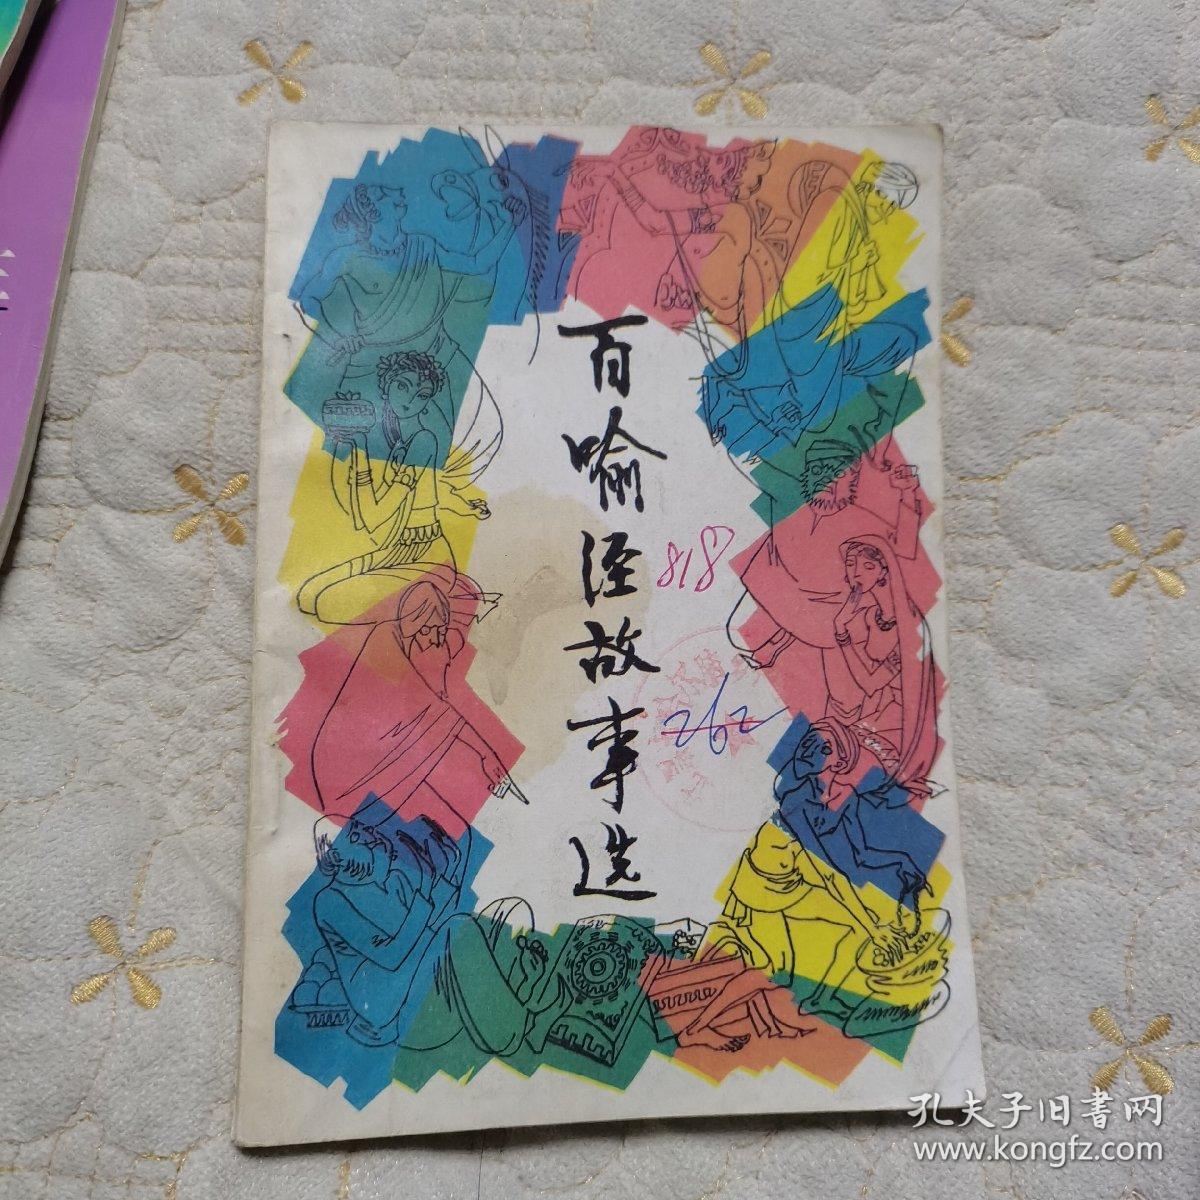 百喻经故事选
818
262
孔夫子旧书网
www.kongfz.com